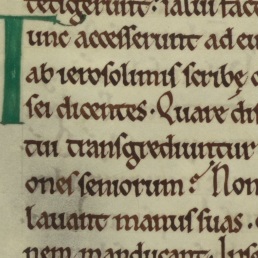 tetigerunt: salui fact
Tunc accesserunt ad eu
ab ierosolimis scribę
sei dicentes. Quare dis
tui transgrediuntur
ones seniorum? Non
lauant manus suas.
nem manducant. Ipse